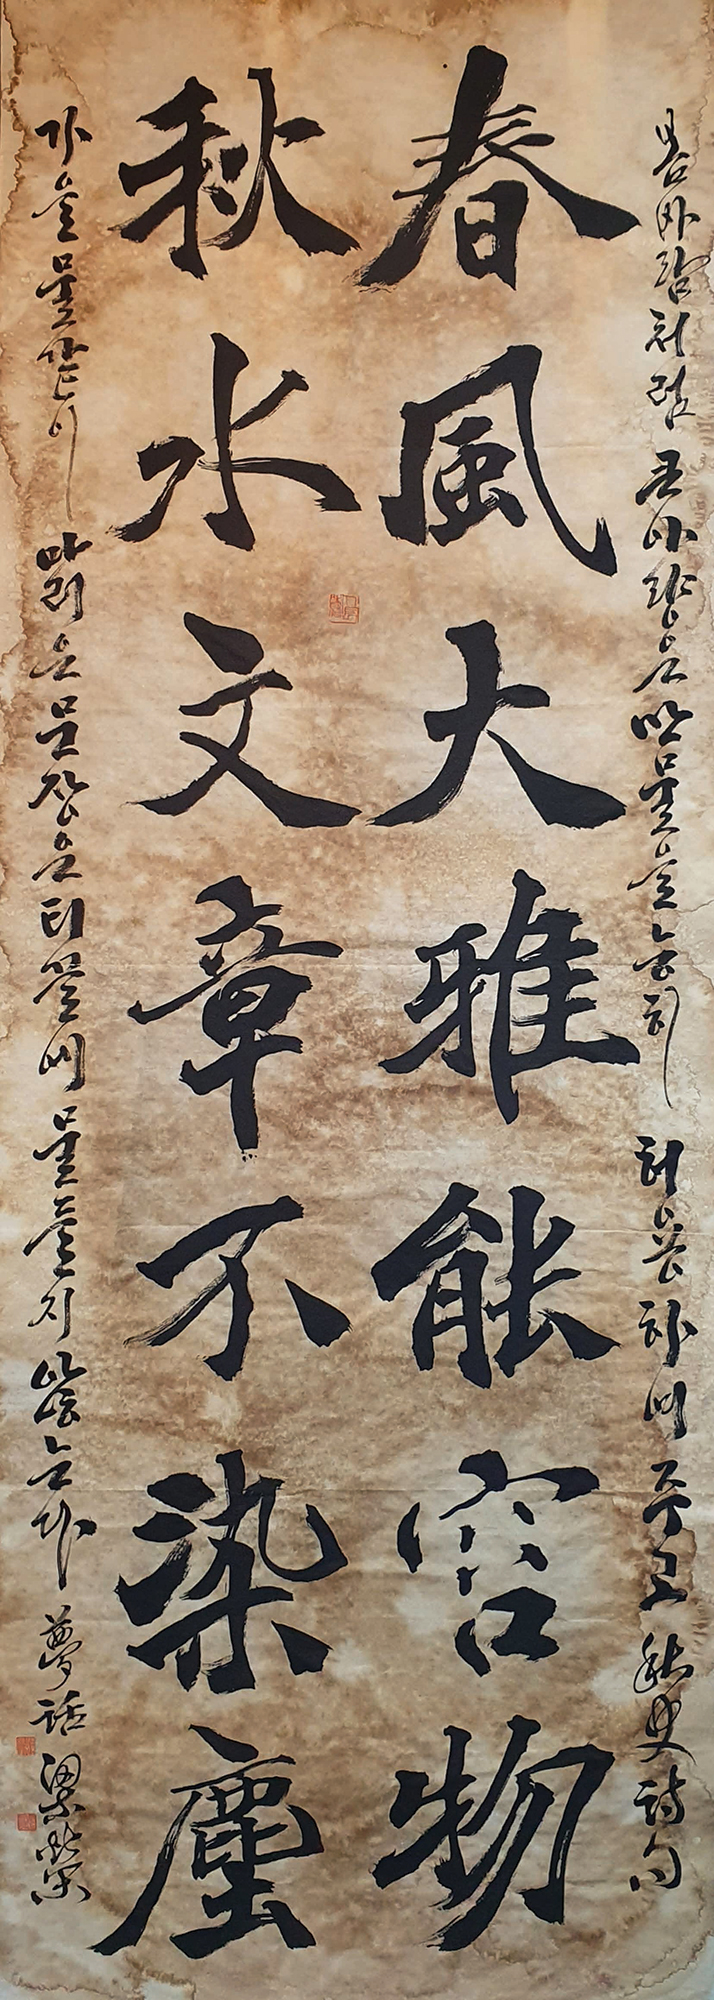 봄바람처럼 큰 아량은 만물을 능히 허용하여 주고 秋史詩句
春風大雅能容物
秋水文章不染塵
가을 물같이 맑은 문장은 티끌에 물들지 않는다 夢話